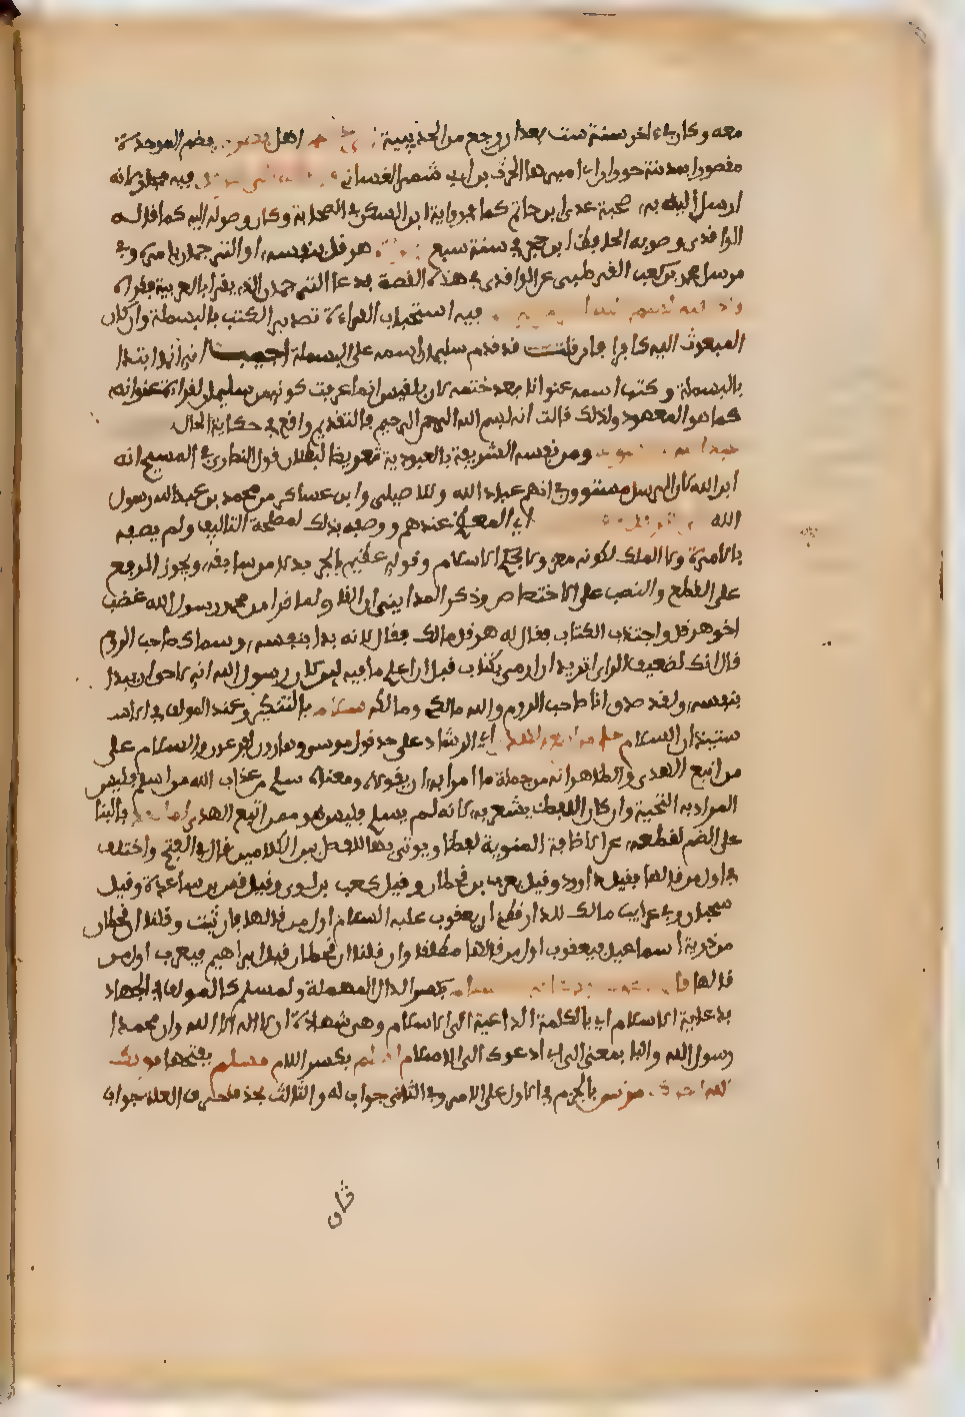 معه وكان في ءاخر سنة ست بعد ان رجع من الحديبية اهل بصرى بضم الموحدة
مقصورا مدينة حوران اي اميرها الحرث بن ابي شمر الغساني فيه مجاز لانه
ارسل اليه به صحبة عدي بن حاتم كما في رواية ابن السكن في الصحابة وكان وصوله اليه كما قاله
الواقدي وصوبه الحافظ ابن حجر في سنة سبع هرقل بنفسه او الترجمان بامره وفي
مرسل محمد بن كعب القرظي عن الواقدي في هذه القصة فدعا الترجمان الذي يقرا بالعربية فقراه
فيه استحباب البداءة تصدير الكتب بالبسملة وان كان
المبعوث اليه كافرا فان قلت قد قدم سليمان اسمه على البسملة اجيب انه انما ابتدا
بالبسملة وكتب اسمه عنوانا بعد ختمه لان بلقيس انما عرفت كونه من سليمان لقراءة عنوانه
كما هو المعهود ولذلك قالت انه بسم الله الرحمن الرحيم فالتقديم واقع في حكاية الحال
وصف نفسه الشريفة بالعبودية تعريضا لبطلان قول النصارى في المسيح انه
ابن الله لان الرسل مستوون في انهم عباد الله وللاصيلي وابن عساكر من محمد بن عبد الله رسول
الله اي المعظم عندهم ووصفه بذلك لمصلحة التاليف ولم يصفه
بالامرة ولا الملك لكونه معزولا بحكم الاسلام وقوله عظيم بالجر بدل من سابقه ويجوز الرفع
على القطع والنصب على الاختصاص وذكر المدايني ان القارئ لما قرا من محمد رسول الله غضب
اخو هرقل واجتذب الكتاب فقال له هرقل مالك فقال لانه بدا بنفسه وسماك صاحب الروم
قال انك لضعيف الراي اتريد ان ارمي بكتاب قبل ان اعلم ما فيه لين كان رسول الله انه لاحق ان يبدا
بنفسه ولقد صدق انا صاحب الروم والله مالكي ومالكه سلام بالتنكير وعند المولف في
ستيذان السلام على من اتبع الهدى اي الرشاد على حد قول موسى وهارون لفرعون والسلام على
من اتبع الهدى والظاهر انه من جملة ما امرا به ان يقولاه ومعناه سلم من عذاب الله من اسلم فليس
المراد به التحية وان كان اللفظ يشعر به لانه لم يسلم فليس هو ممن اتبع الهدى اما بعد بالبنا
على الضم لقطعه عن الاضافة المنوية لفظا ويوتى بها للفصل بين الكلامين قال في الفتح واختلف
في اول من قالها فقيل داود وقيل يعرب بن قحطان وقيل كعب بن لوي وقيل قس بن ساعدة وقيل
سحبان وفي غرايب مالك للدارقطني ان يعقوب عليه السلام اول من قالها فان ثبت وقلنا ان قحطان
من ذرية اسماعيل فيعقوب اول من قالها مطلقا وان قلنا ان قحطان قبل ابراهيم فيعرب اول من
قالها بكسر الدال المهملة ولمسلم كالمولف في الجهاد
بداعية الاسلام اي بالكلمة الداعية الى الاسلام وهي شهادة ان لا اله الا الله وان محمدا
رسول الله والبا بمعنى الى اي ادعوك الى الاسلام اسلم بكسر اللام تسلم بفتحها يوتك
الله اجرك مرتين بالجزم في الاول على الامر وفي الثاني جواب له والثالث بحذف حرف العلة جواب
ثان